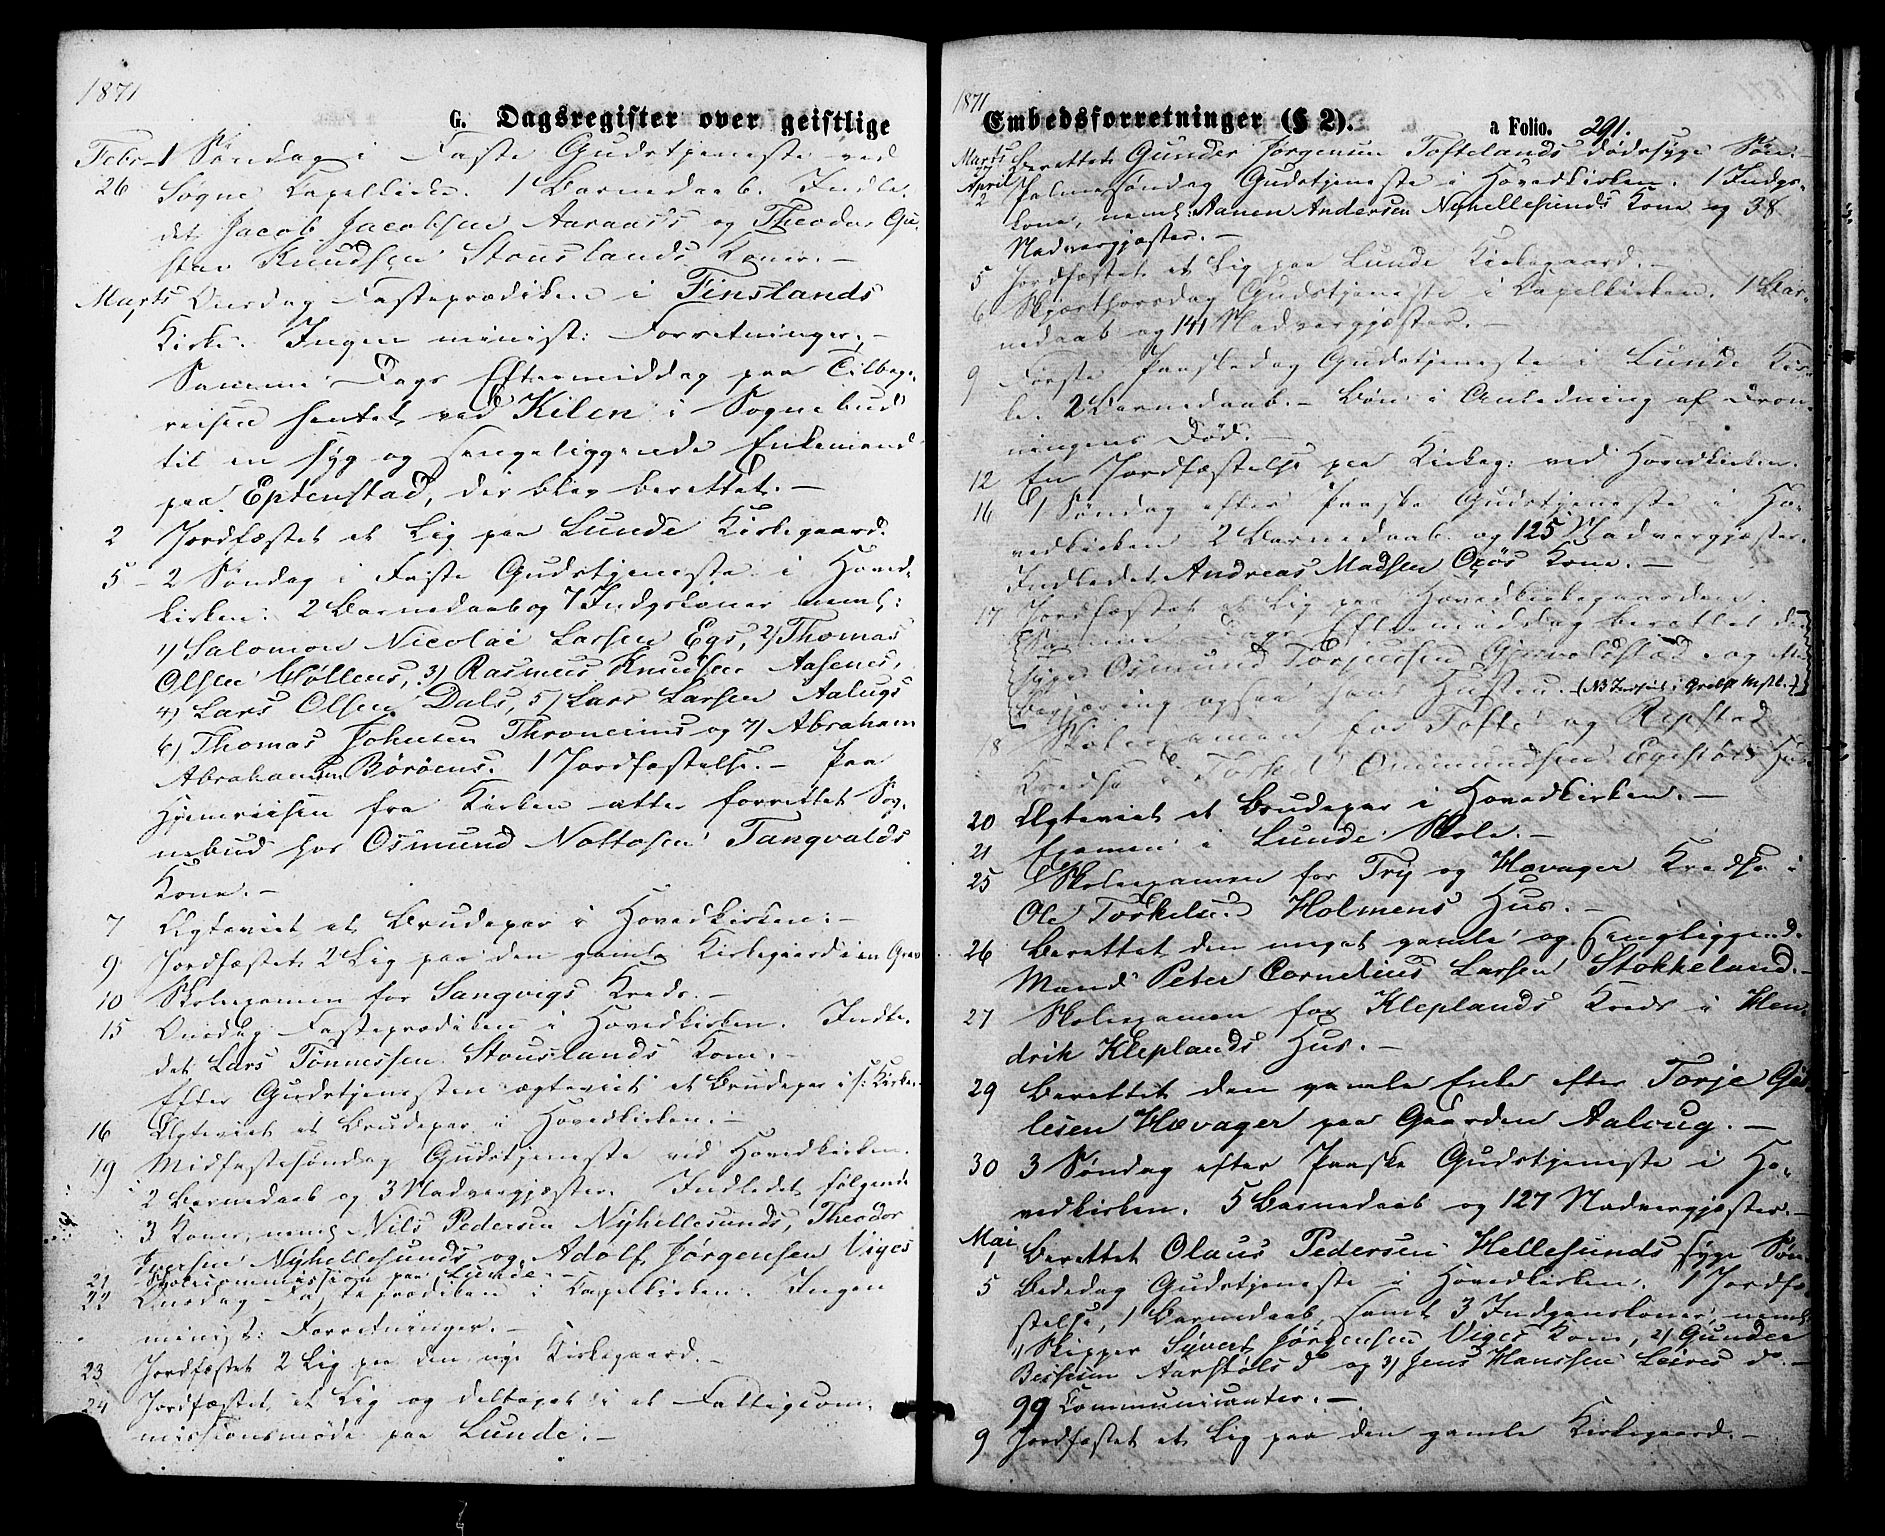 1871
G. Dagsregister over geistlige
Febr 1 Søndag i Faste Gudstjeneste ved
26 Søgne Capelkirke. 1 Barnedaab. Indle-
det Jacob Jacobsen Aaraass og Theodor Gu-
stav Knudsen Stouslands Koner.-
Marts 1 Onsdag Fasteprædiken i Finslands
Kirke. Ingen minist: Forretninger.-
Samme Dags Eftermiddag paa Tilbage-
reisen hentet ved Kilen i Sognebud
til en syg og sengeliggende Enkemand
paa Eptenstad, der blev berettet.-
2 Jordfæstet et Lig paa Lunde Kirkegaard.
5 - 2 Søndag i Faste Gudstjeneste i Hoved-
kirken. 2 Barnedaab og 7 Indgskoner neml:
1) Salomon Nicolai Larsen Egs, 2) Thomas
Olsen Møllens, 3) Rasmus Knudsen Aasenes,
4) Lars Olsen Dals, 5) Lars Larsen Aalugs
6) Thomas Johnsen Throneims og 7) Abraham
Abrahamsen Böröens. 1 Jordfæstelse.- Paa
Hjemreisen fra Kirken atter forrettet Sog-
nebud hos Osmund Nottosen Tangvalds
Kone.-
7 Ægteviet et Brudepar i Hovedkirken.-
9 Jordfæstet 2 Lig paa den gamle Kirkegaard i en Grav
10 Skoleexamen for Langvigs Kreds.-
15 Onsdag Fasteprædiken i Hovedkirken. Indle-
det Lars Tönnessen Stouslands Kone.-
Efter Gudstjenesten ægteviet et Brudepar i s: Kirke.
16 Ægteviet et Brudepar i Hovedkirken.-
19 Midfastesøndag Gudstjeneste ved Hovedkirken.
2 Barnedaab og 3 Nadvergjæster. Indledet følgende
3 Koner, neml Nils Pedersen Nÿhellesunds, Theodor
Iversen Nÿhellesunds og Adolf Jørgensen Viges
21 Skolecommission paa Lunde.-
22 Onsdag Fasteprædiken i Capelkirken. Ingen
minist: Forretninger.-
23 Jordfæstet 2 Lig paa den nye Kirkegaard.-
24 Jordfæstet et Lig og deltaget i et Fattigcom-
missionsmøde paa Lunde.-
1871
Embedsforretninger (§ 2). a Folio. 291.
Marts Berettet Gunder Jørgensen Toftelands dødssyge Søn.-
April 2 Palmesøndag Gudstjeneste i Hovedkirken. 1 Indgs-
kone, neml: Aanen Andersen Nÿhellesunds Kone og 38
Nadvergjæster.-
5 Jordfæstet et Lig paa Lunde Kirkegaard.-
6 Skjærthorsdag Gudstjeneste i Capelkirken. 1 Bar-
nedaab og 141 Nadvergjæster.-
9 Første Paaskedag Gudstjeneste i Lunde Kir-
ke. 2 Barnedaab.- Bøn i Anledning af Dron-
ningens Død.-
12 En Jordfæstelse paa Kirkeg: ved Hovedkirken.
16 1 Søndag efter Paaske Gudstjeneste i Ho-
vedkirken 2 Barnedaab og 125 Nadvergjæster.
Indledet Andreas Madsen Oşös Kone.-
17 Jordfæstet et Lig paa Hovedkirkegaarden.
Samme Dags Eftermiddag berettet den
syge Osmund Torjussen Gjervoldstad og
Begjæring ogsaa hans Hustru.
18 Skoleexamen for Tofte og Repstad
Kredse i Torkel Ommundsen Egeslöis Hus.
20 Ægteviet et Brudepar i Hovedkirken.-
21 Examen i Lunde Skole.-
25 Skoleexamen for Try og Hævager Kredse i
Ole Torkels. Holmens Hus.-
26 Berettet den meget gamle og sengliggende
Mand Peter Cornelius Larsen Stokkeland.-
27 Skoleexamen for Kleplands Kreds i Hen-
drik Kleplands Hus.-
29 Berettet den gamle Enke efter Torje Gie-
lesen Hævager paa Gaarden Aalvug.-
30 3 Søndag efter Paaske Gudstjeneste i Ho-
vedkirken. 5 Barnedaab og 127 Nadvergjæster.-
Mai 1 Berettet Olaus Pedersen Hellesunds syge Søn
5 Bededag Gudstjeneste i Hovedkirken. 1 Jordfæ-
stelse, 1 Barnedaab, samt 3 Indgangskoner, neml
1) Skipper Sÿvert Jørgensen Viges Kone, 2) Gunder
Bessesen Aarstöls do og 3) Jens Hanssen Leires do.-
99 Communicanter.-
9 Jordfæstet et Lig paa den gamle Kirkegaard.-